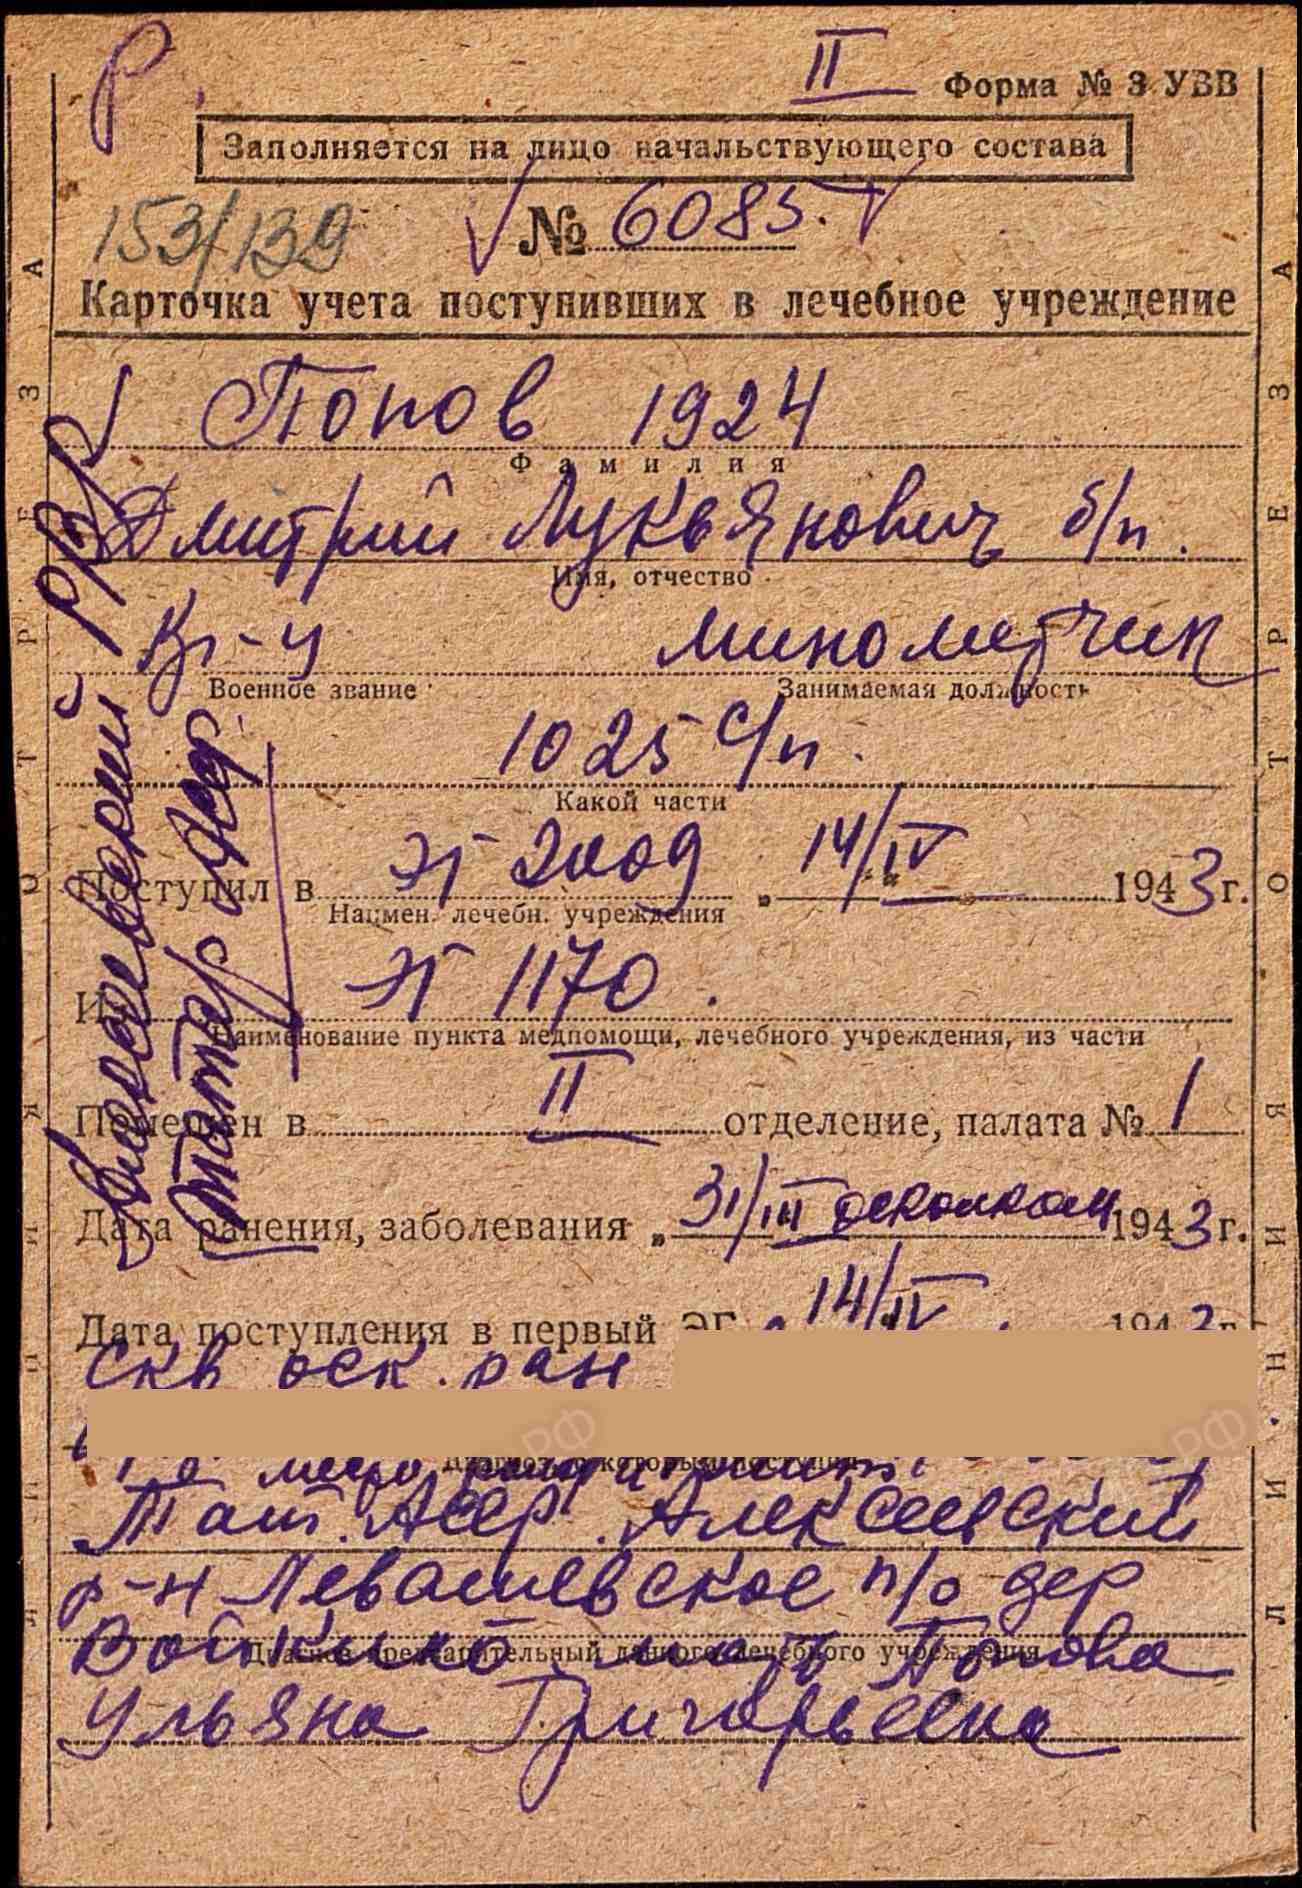 Р.
II Форма № 3 УВВ
Заполняется на лицо начальствующего состава
153/139 № 6085.
Карточка учета поступивших в лечебное учреждение
Попов 1924
Фамилия
Дмитрий Лукьянович б/п.
Имя, отчество
Кр-ц минометчик
Военное звание Занимаемая должность
1025 с/п.
Какой части
Поступил в ЭГ 2009 „14/IV" 1943 г.
Наимен. лечебн. учреждения
Из ЭГ 1170.
Наименование пункта медпомощи, лечебного учреждения, из части
Помещен в II отделение, палата № 1
Дата ранения, заболевания „31/III осколком 1943 г.
Дата поступления в первый ЭГ 14/IV 1943 г.
Скв оск. ран
Диагноз, с которым поступил
Тат. Асср. Алексеевский
р-н Левашевское п/о дер
Войкино мать Попова
Диагноз предварительный данного лечебного учреждения
Ульяна Григорьевна
Алексеевский РВК
Татар Асср
ЛИНИЯ ОТРЕЗА
ЛИНИЯ ОТРЕЗА